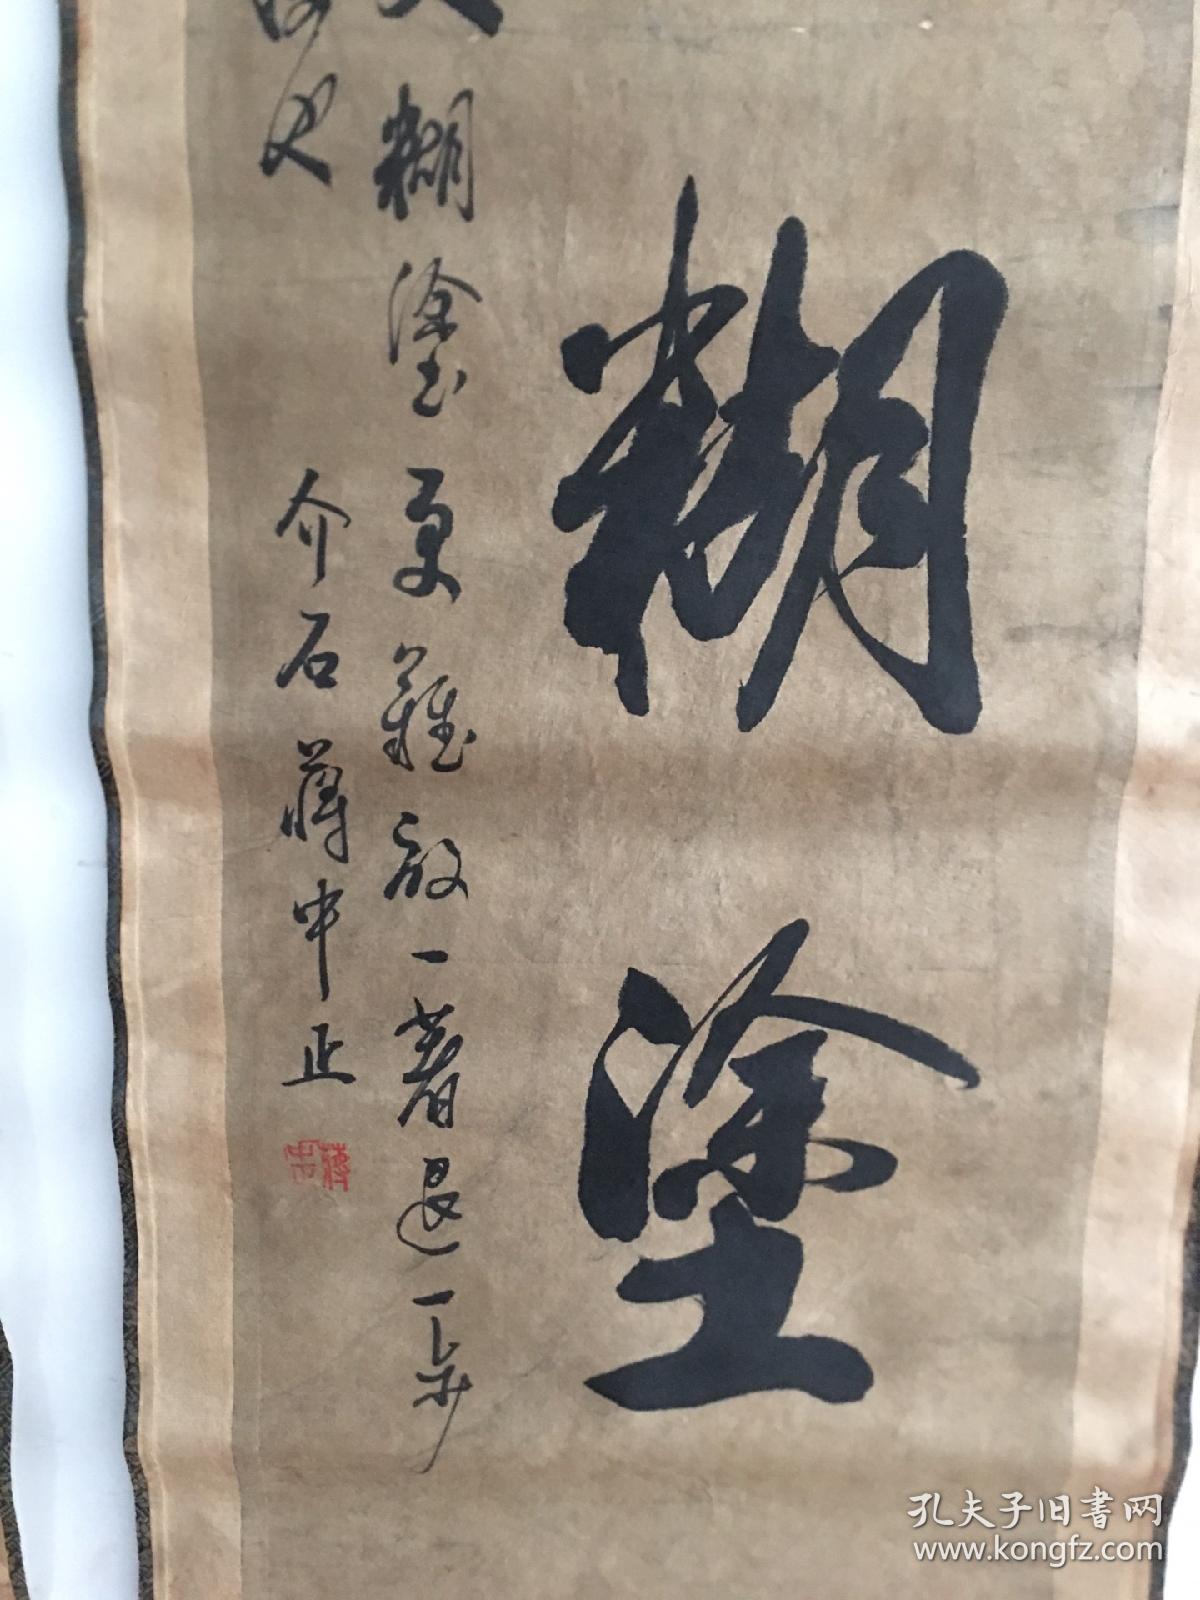 糊塗
糊塗更難放一著退一步
介石蔣中正
孔夫子旧书网
www.kongfz.com